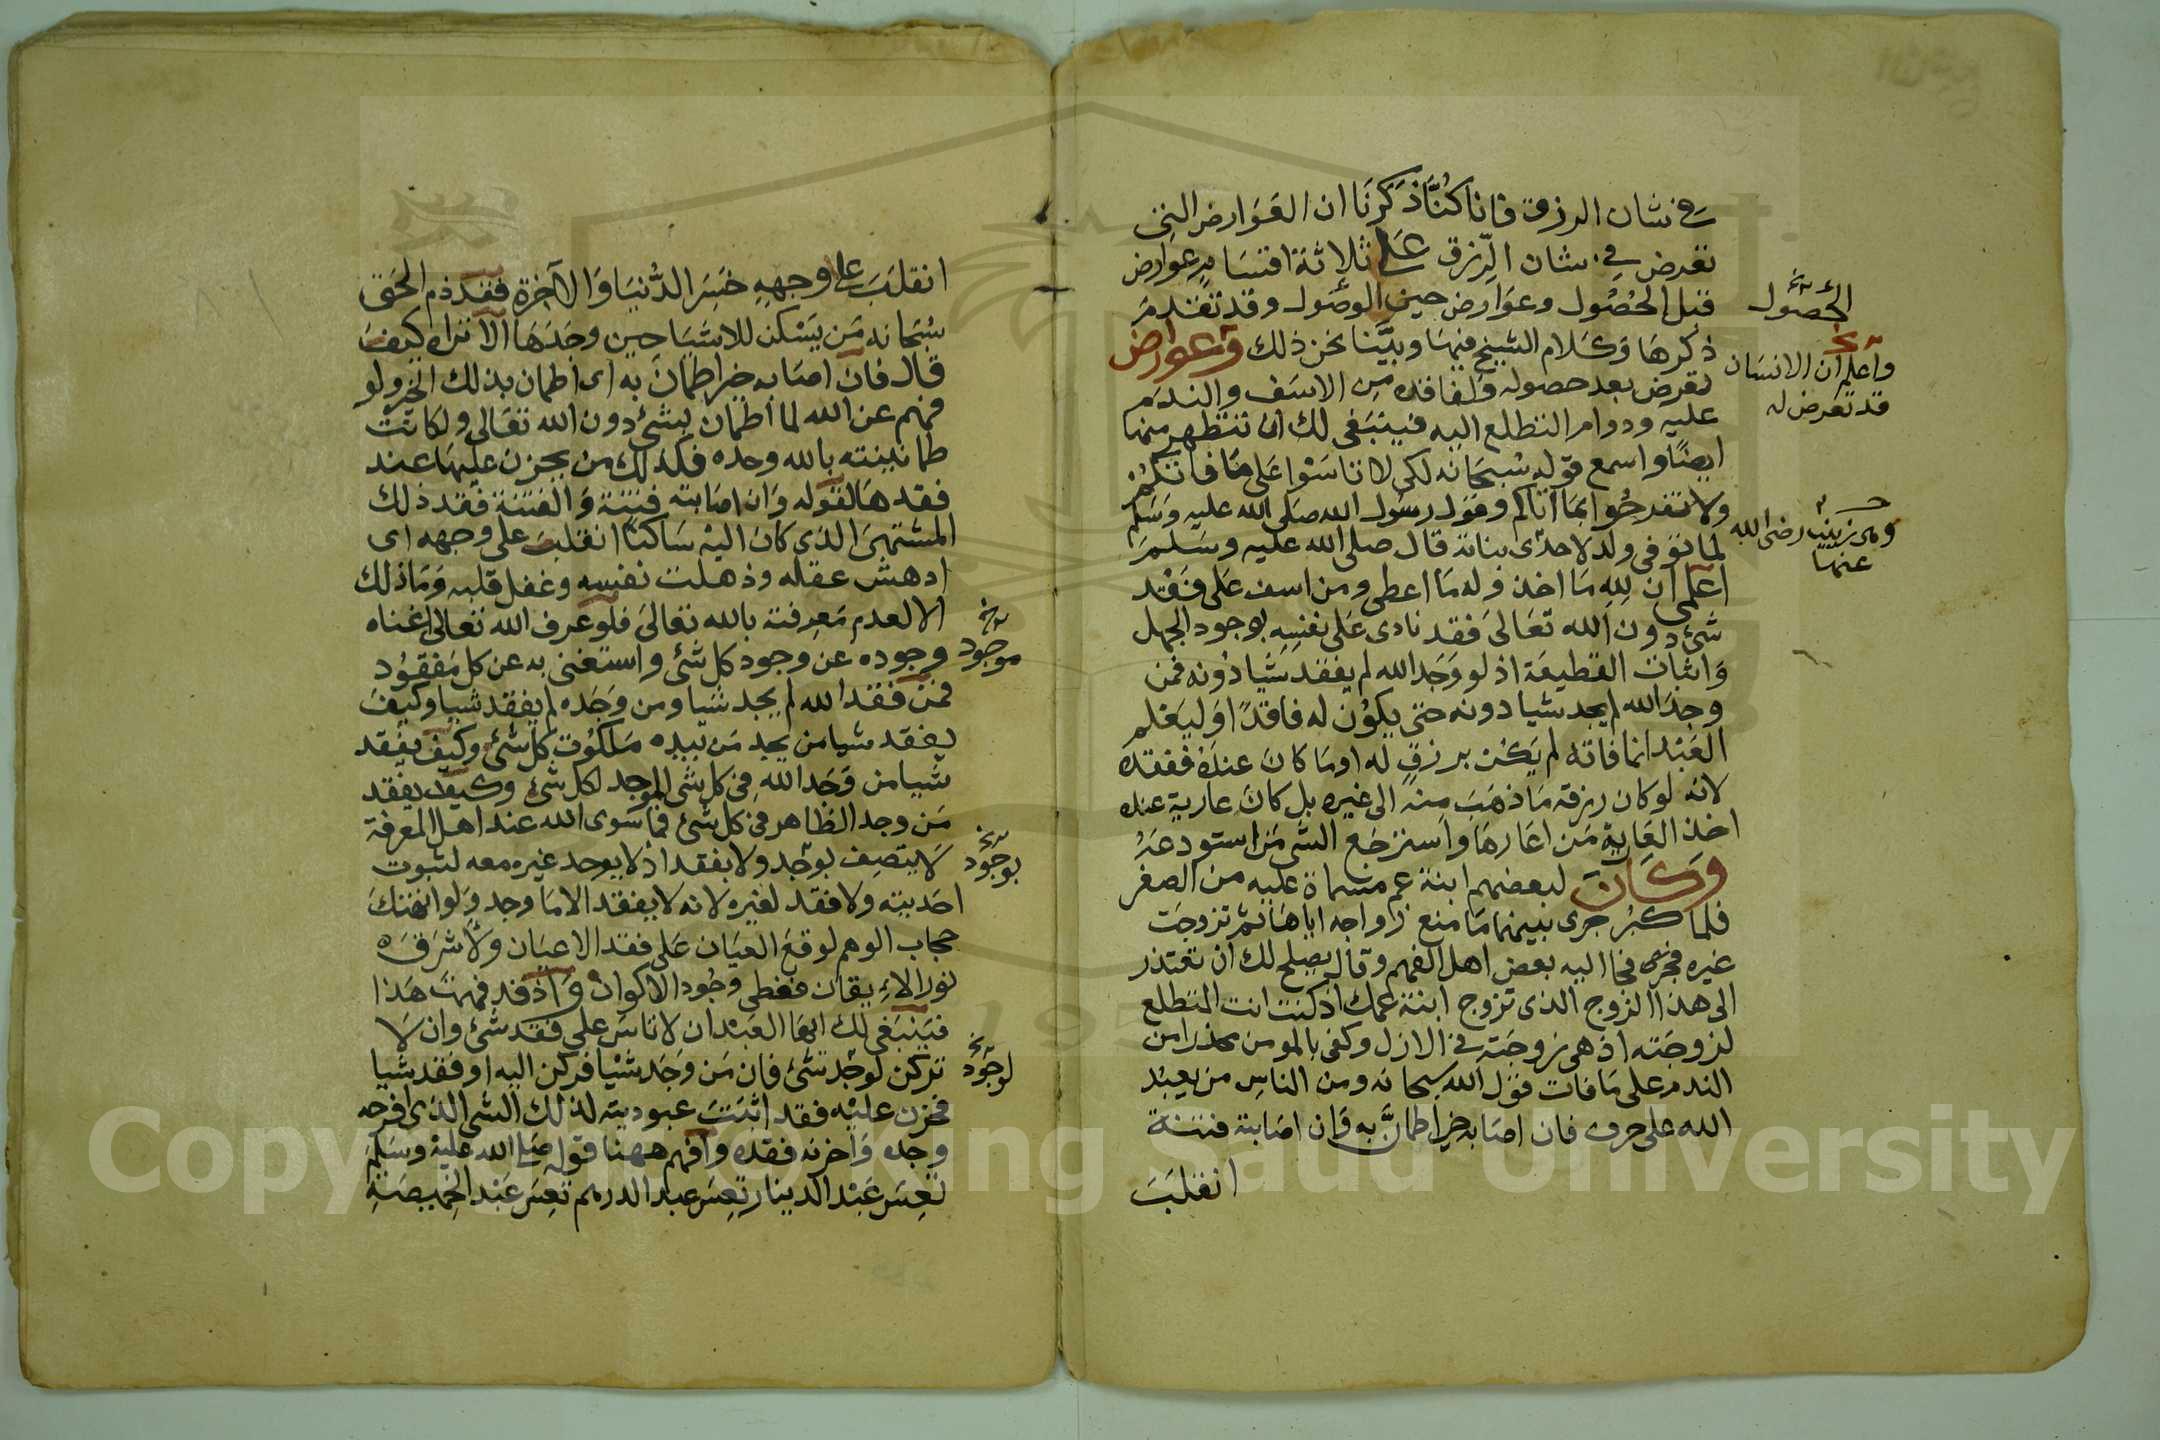 في شان الرزق فانا كنا ذكرنا ان العوارض التي
تعرض في شان الرزق على ثلاثة اقسام عوارض
قبل الحصول وعوارض حين الوصول وقد تقدم
ذكرها وكلام الشيخ فيها وبينا نحن ذلك وعوارض
تعرض بعد حصوله ونفاده من الاسف والندم
عليه ودوام التطلع اليه فينبغي لك ان تتطهر منها
ايضا واسمع قوله سبحانه لكي لا تاسوا على ما فاتكم
ولا تفرحوا بما اتاكم وقول رسول الله صلى الله عليه وسلم
لما توفي ولد لاحدى بناته قال صلى الله عليه وسلم
اعلمي ان لله ما اخذ وله ما اعطى ومن اسف على فقد
شئ دون الله تعالى فقد نادى على نفسه بوجود الجهل
واثبات القطيعة اذ لو وجد الله لم يفقد شيا دونه فمن
وجد الله لم يجد شيا دونه حتى يكون له فاقدا وليعلم
العبد انما فاته لم يكن برزق له او ما كان عنده ففقده
لانه لو كان رزقه ما ذهب منه الى غيره بل كان عارية عنده
اخذ العارية من اعارها واسترجع الشي من استودعه
وكان لبعضهم ابنة عم مسماة عليه من الصغر
فلما كبر جرى بينهما ما منع زواجه اياها ثم تزوجت
غيره فجا اليه بعض اهل الفهم وقال يصلح لك ان تعتذر
الى هذا الزوج الذى تزوج ابنة عمك اذ كنت انت المتطلع
لزوجته اذ هي زوجته في الازل وكفى بالمومن محذرا من
الندم على ما فات قول الله سبحانه ومن الناس من يعبد
الله على حرف فان اصابه خير اطمان به وان اصابته فتنة
انقلب
الحصول
واعلم ان الانسان
قد تعرض له
وهى زينب رضى الله
عنها
انقلب على وجهه خسر الدنيا والاخرة فقد ذم الحق
سبحانه من يسكن للاشيا حين وجدها الا تراه كيف
قال فان اصابه خير اطمان به اى اطمان بذلك الخير ولو
فهم عن الله لما اطمان بشئ دون الله تعالى ولكانت
طمانينته بالله وحده فكذلك من يحزن عليها عند
فقدها لقوله وان اصابته فتنة والفتنة فقد ذلك
المشتهى الذى كان اليه ساكنا انقلب على وجهه اى
ادهش عقله وذهلت نفسه وغفل قلبه وما ذلك
الا لعدم معرفته بالله تعالى فلو عرف الله تعالى اغناه
وجوده عن وجود كل شئ واستغنى به عن كل مفقود
فمن فقد الله لم يجد شيا ومن وجده لم يفقد شيا وكيف
يفقد شيا من يجد من بيده ملكوت كل شئ وكيف يفقد
شيا من وجد الله في كل شئ الموجد لكل شئ وكيف يفقد
من وجد الظاهر في كل شئ فما سوى الله عند اهل المعرفة
لا يتصف بوجد ولا بفقد اذ لا يوجد غيره معه لثبوت
احديته ولا فقد لغيره لانه لا يفقد الا ما وجد ولو انهتك
حجاب الوهم لوقع العيان على فقد الاعيان ولاشرق
نور الايقان فغطى وجود الاكوان واذ قد فهمت هذا
فينبغي لك ايها العبد ان لا تاس على فقد شئ وان لا
تركن لوجد شئ فان من وجد شيا فركن اليه او فقد شيا
فحزن عليه فقد اثبت عبوديته لذلك الشي الذى افرحه
وجده واحزنه فقده وافهم ههنا قوله صلى الله عليه وسلم
تعس عبد الدينار تعس عبد الدرهم تعس عبد الخميصة
موجود
بوجود
لوجود
Copyright © King Saud University